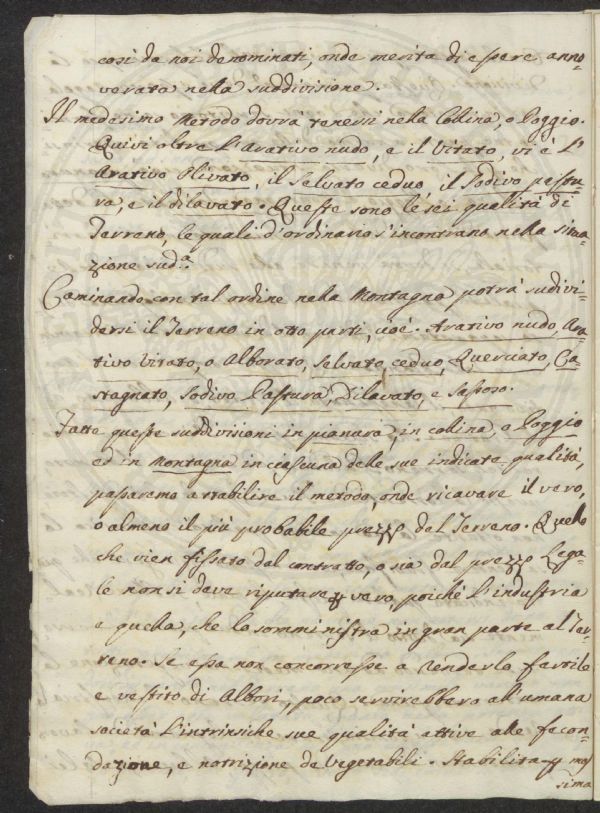 così da noi denominati, onde merita di essere anno-
verata nella suddivisione.
Il medesimo Metodo dovrà tenersi nella Collina, o Poggio.
Quivi oltre l'Arativo nudo, e il Vitato, vi è l'
Arativo Olivato, il Selvato ceduo, il Sodivo pastu-
ra, e il dilavato. Queste sono le sei qualità di
Terreno, le quali d'ordinario s'incontrano nella situa-
zione sud.a
Caminando con tal ordine nella Montagna potrà sudivi-
dersi il Terreno in otto parti, cioè. Arativo nudo, Ara-
tivo Vitato, o Alborato, Selvato, ceduo, Querciato, Ca-
stagnato, Sodivo Pastura, Dilavato, e Sassoso.
Fatte queste suddivisioni in pianura, in collina, o Poggio
ed in Montagna in ciascuna delle sue indicate qualità,
passaremo a stabilire il metodo, onde ricavare il vero,
o almeno il più probabile prezzo del Terreno. Quello
che vien fissato dal contratto, o sia dal prezzo Lega-
le non si deve riputare p vero, poiché l'industria
e quella, che lo somministra in gran parte al Ter-
reno. Se essa non concorresse a renderlo fertile
e vestito di Albori, poco servirebbero all'umana
società l'intrinsiche sue qualità attive alla fecon-
dazione, e notrizione de Vegetabili. Stabilita p mas
sima